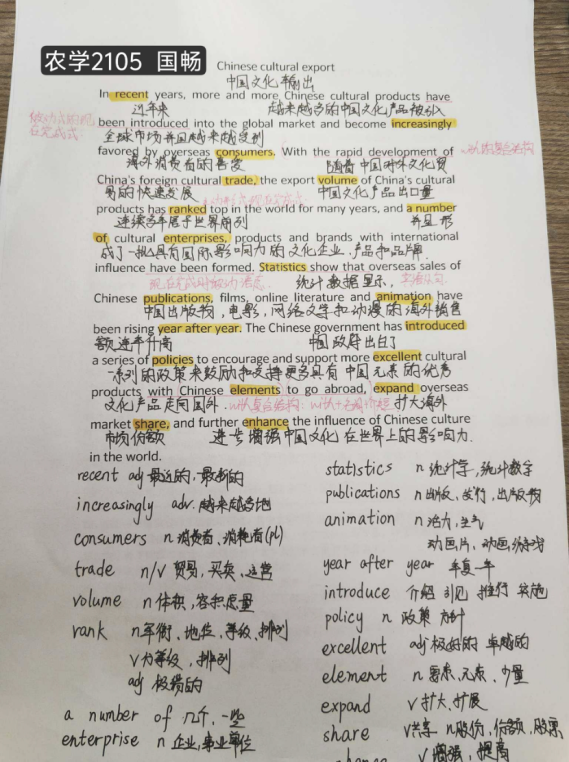 农学2105 国畅
Chinese cultural export
中国文化输出
In recent years, more and more Chinese cultural products have
近年来 越来越多的中国文化产品被引入
been introduced into the global market and become increasingly
全球市场并且越来越受到
favored by overseas consumers. With the rapid development of
海外消费者的喜爱 随着中国对外文化贸
China's foreign cultural trade, the export volume of China's cultural
易的快速发展 中国文化产品出口量
products has ranked top in the world for many years, and a number
连续多年居于世界前列 并且形
of cultural enterprises, products and brands with international
成了一批具有国际影响力的文化企业、产品和品牌.
influence have been formed. Statistics show that overseas sales of
统计数据显示,
Chinese publications, films, online literature and animation have
中国出版物,电影,网络文学和动漫的海外销售
been rising year after year. The Chinese government has introduced
额逐年升高 中国政府出台了
a series of policies to encourage and support more excellent cultural
一系列的政策来鼓励和支持更多具有中国元素的优秀
products with Chinese elements to go abroad, expand overseas
文化产品走向国外. 扩大海外
market share, and further enhance the influence of Chinese culture
市场份额 进步增强中国文化在世界上的影响力.
in the world.
recent adj 最近的、最新的
increasingly adv. 越来越多地
consumers n 消费者、消耗者(pl)
trade n/v 贸易,买卖、运营
volume n 体积,容积总量
rank n 军衔、地位、等级、排列
v 为等级,排列
adj 极糟的
a number of 几个,一些
enterprise n 企业,事业单位
statistics n 统计学,统计数字
publications n 出版、发行,出版物
animation n 活力,生气
动画片、动画,游戏
year after year 年复一年
introduce 介绍 引见 推行 实施
policy n 政策 方针
excellent adj 极好的 卓越的
element n 要素、元素、少量
expand v 扩大、扩展
share v 共享 n 股份,份额,股票
v 增强,提高